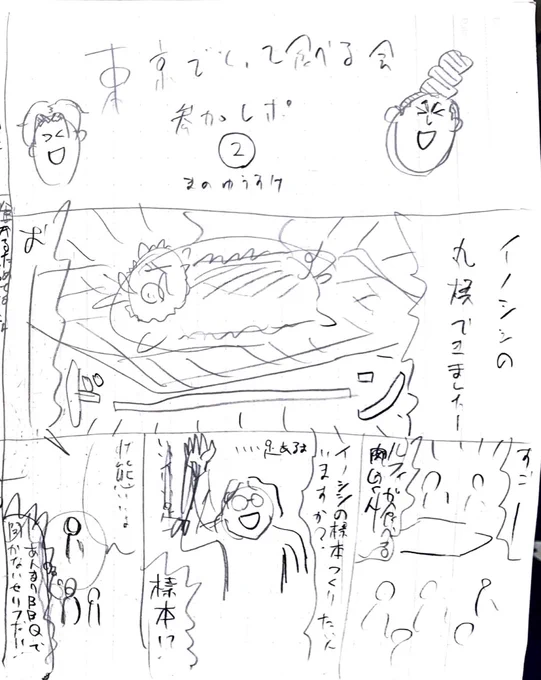 東京でとって食べる会
参加レポ
②
まのゆうすけ
イノシシの
丸焼できましたー
お
すごー
ルフィが食べる
肉じゃん
イノシシの標本つくりたい人
いますか？
足あるよ
標本に？
状態…
あんまりBBQで
聞かないセリフだ…